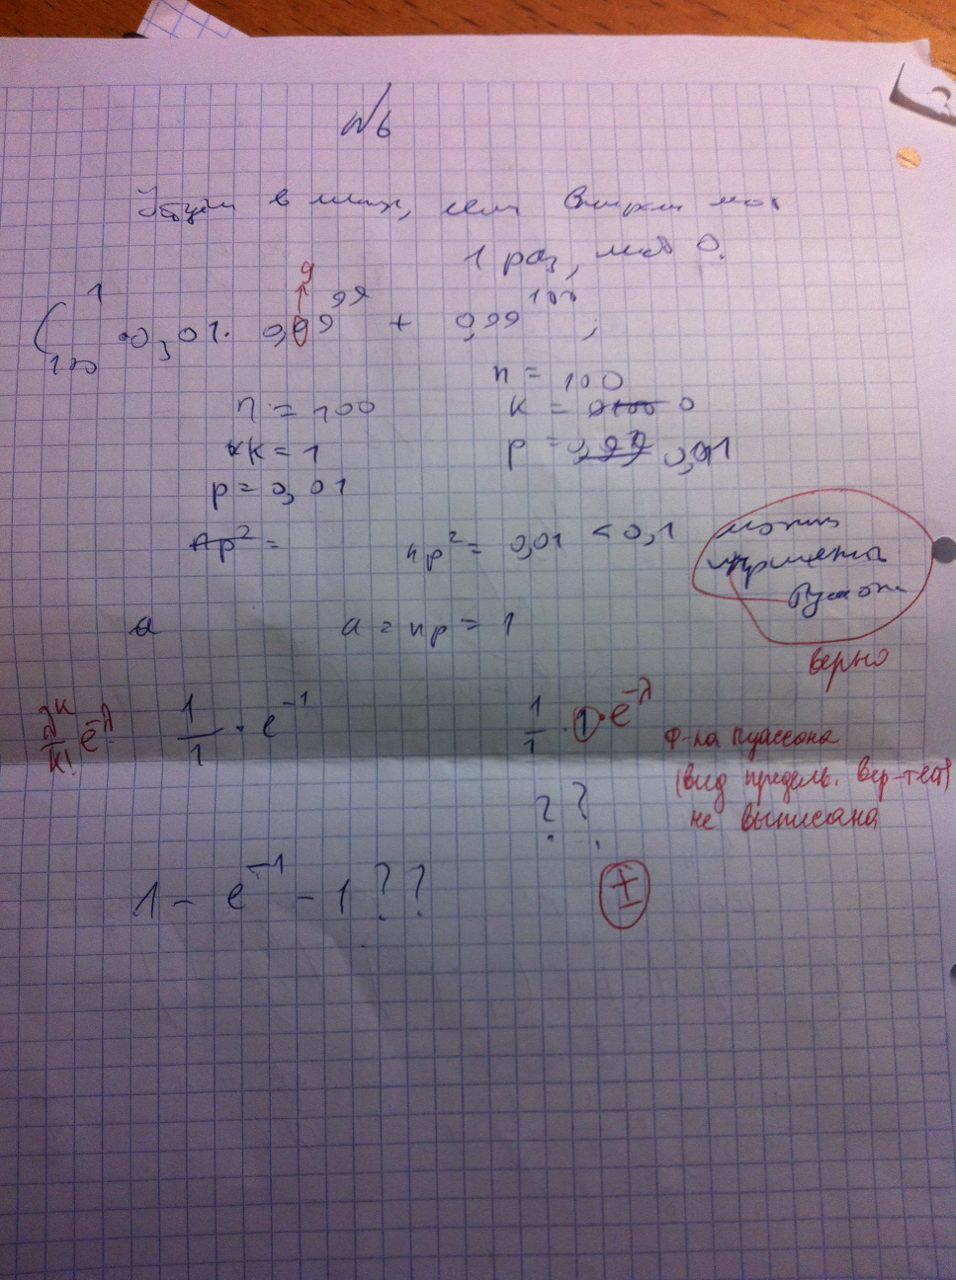 №6
в минус, если выиграем
1 раз, либо 0.
9
C₁₀₀¹ · 0,01 · 0,09⁹⁹ + 0,99¹⁰⁰;
n = 100
n = 100
k = 0
k = 1
p = 0,01
p = 0,01
np² =
np² = 0,01 < 0,1
можно
применить
Пуассон
верно
a
a = np = 1
λᵏ/k! e^-λ
1/1 · e⁻¹
1/1 · 1 · e^-λ
Ф-ла Пуассона
(вид предель. вер-тей)
не выписана
??
1 - e⁻¹ - 1 ??
±